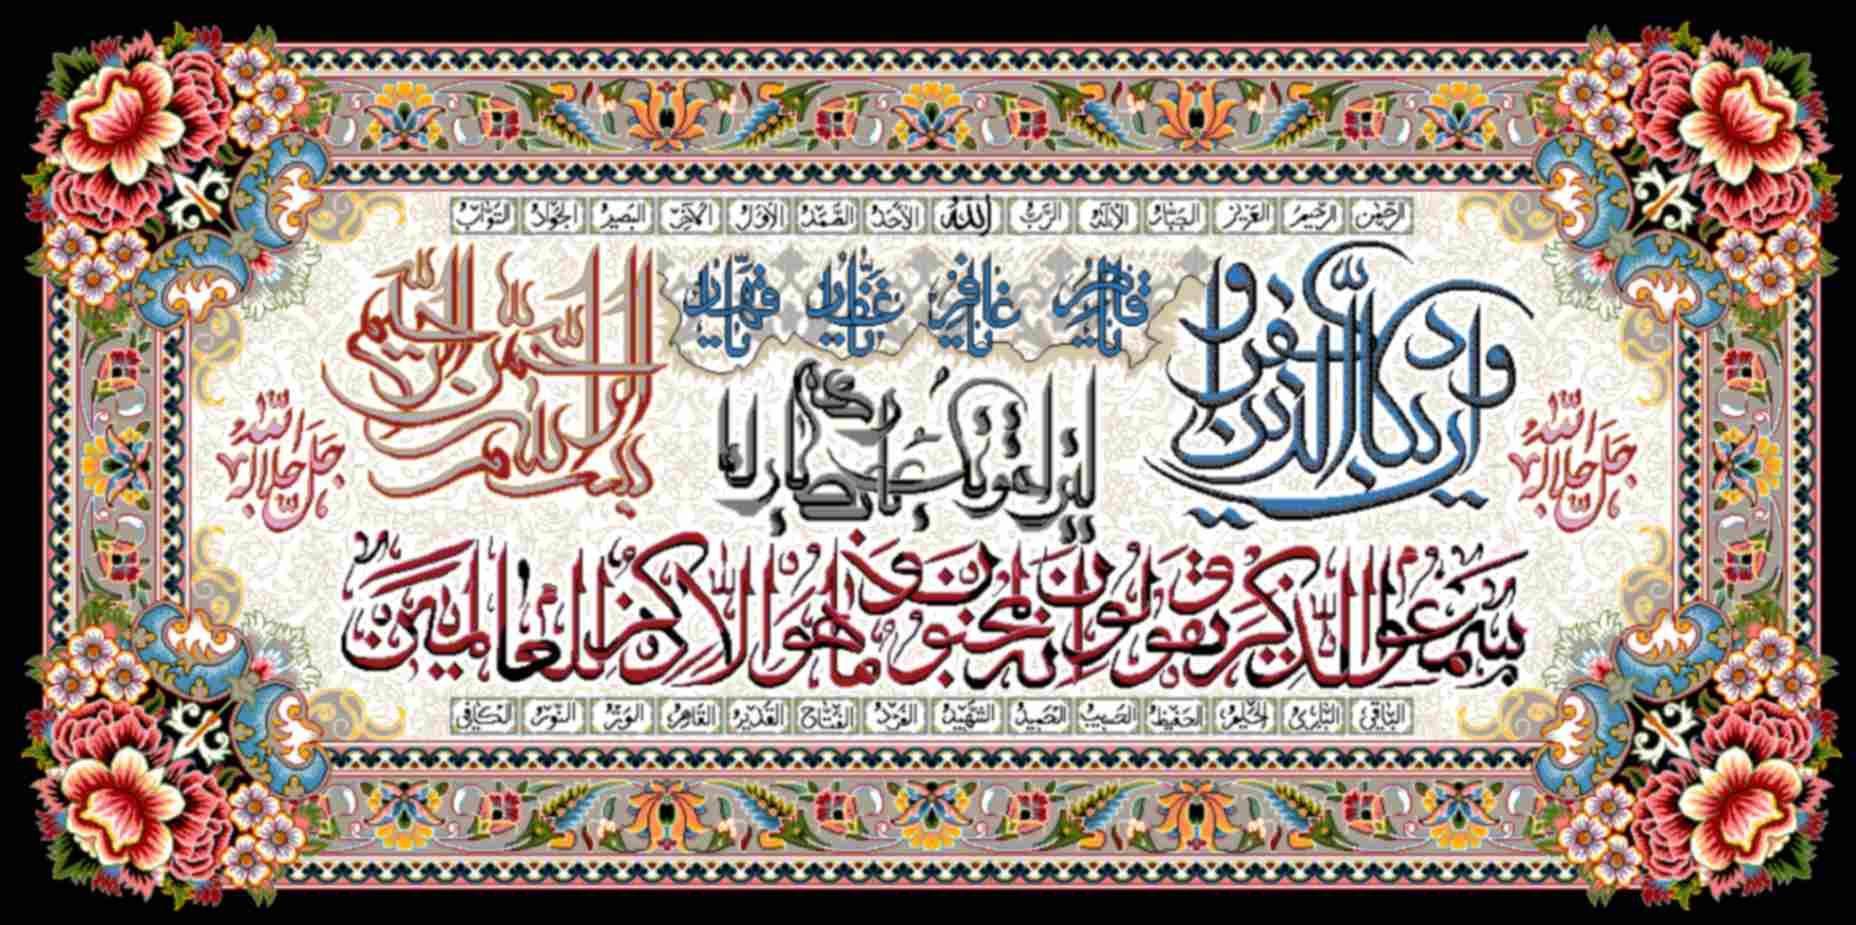 الرحمن الرحيم العزيز الجبار الإله الرب الله الأحد الصمد الأول الآخر البصير الجواد التواب
يا قاهر يا غافر يا غفار يا قهار
بسم الله الرحمن الرحيم
وإن يكاد الذين كفروا
ليزلقونك بأبصارهم لما
جل جلاله الله
جل جلاله الله
سمعوا الذكر ويقولون إنه لمجنون وما هو إلا ذكر للعالمين
الباقي البارئ الحليم الحفيظ الحسيب الحميد الشهيد الفرد الفتاح القدير القاهر الوتر النور الكافي